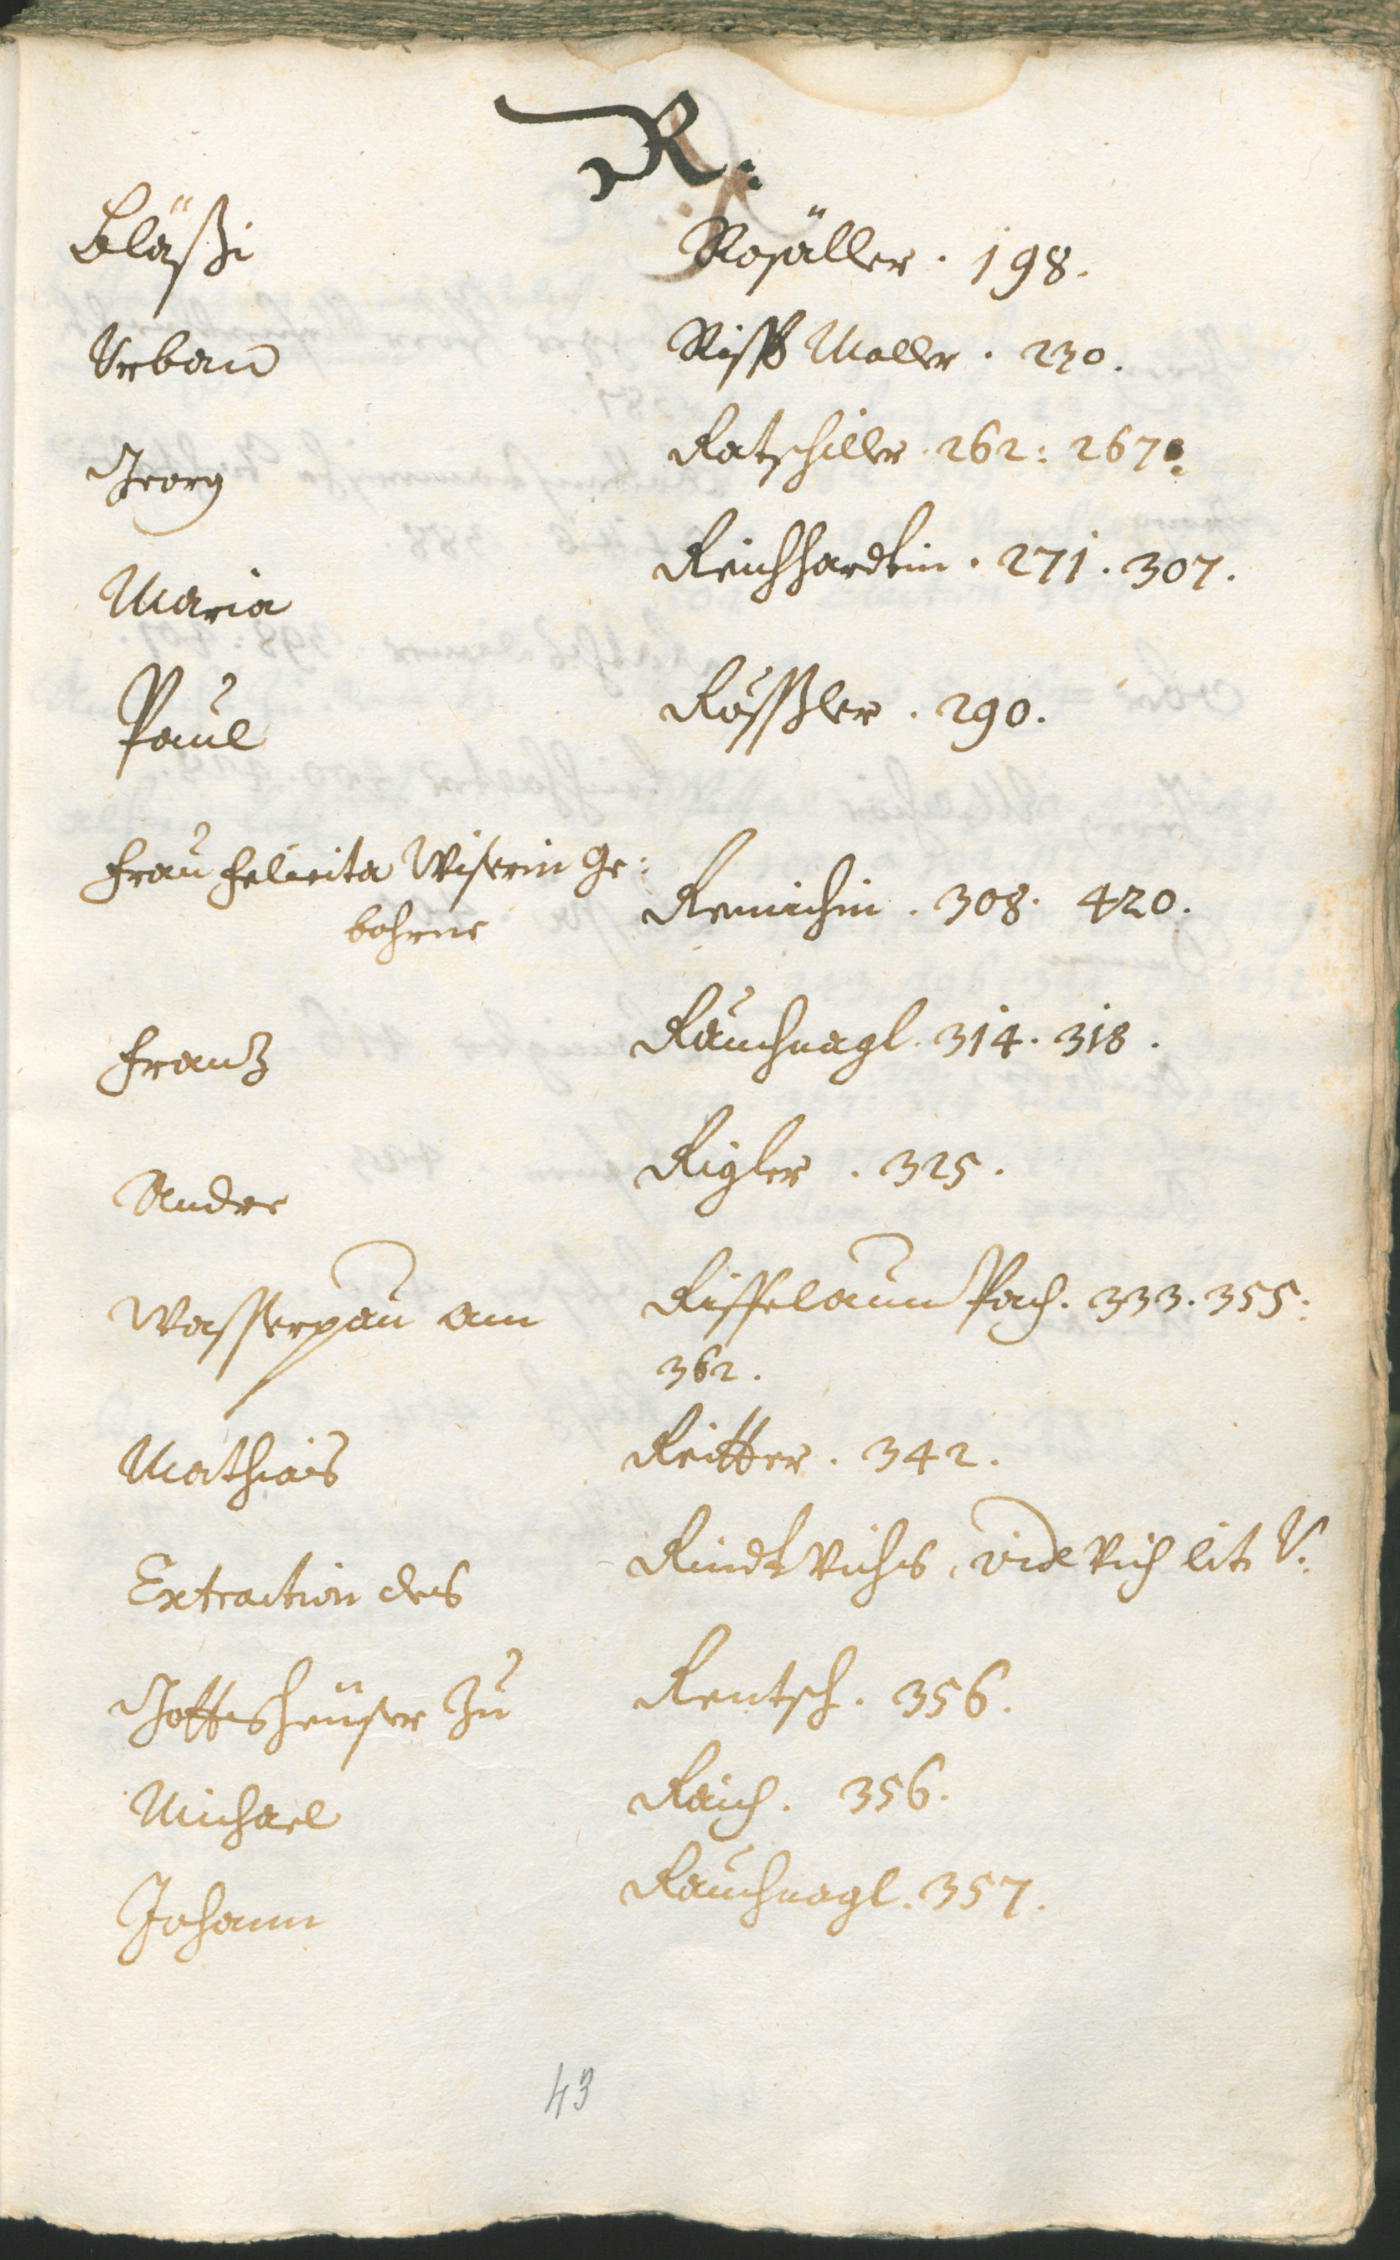 R:
Bläßi Rosäller. 198.
Urban Riss Maller. 230.
Georg Ratschiller. 262: 267.
Maria Reichhardtin. 271. 307.
Paul Rösßler. 290.
Frau Felicita Wiserin Ge:
bohrne Remichin. 308. 420.
Frantz Rauchnagl. 314. 318.
Andre Rigler. 325.
Wasserpau am Riffelaun Pach. 333. 355:
362.
Mathias Reitter. 342.
Extraction des Rindt Viehs, vide Vich lit. V.
Gottsheüser Zu Rentsch. 356.
Michael Raich. 356.
Johann Rauchnagl. 357.
43